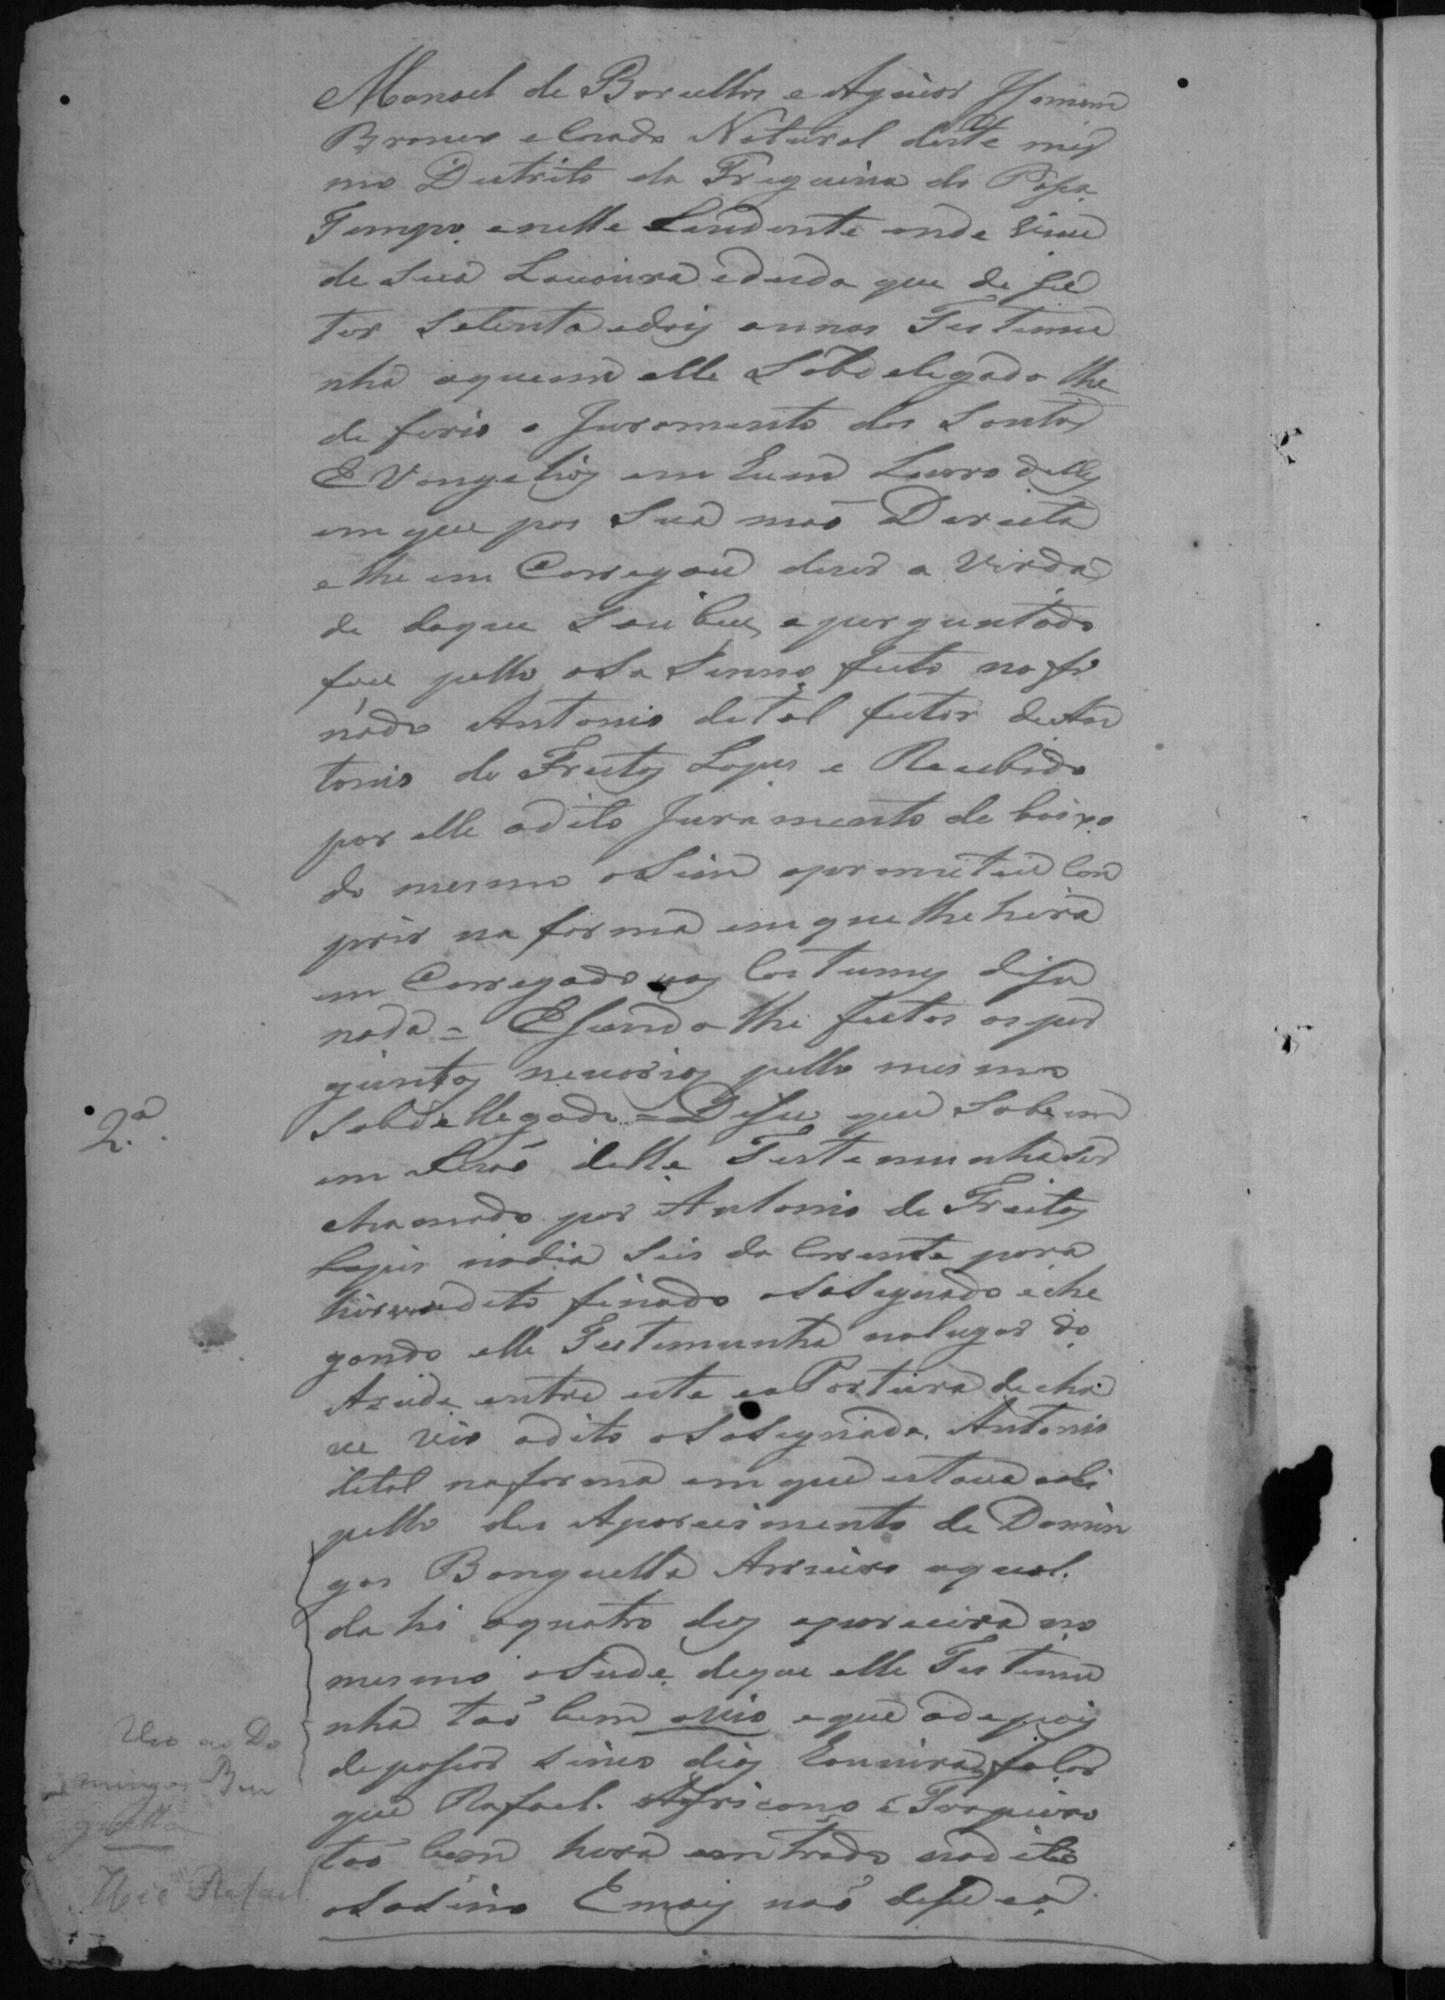 Manoel de Barcellos e Aguiar Homem
Branco e Cazado Natural deste mes
mo Destrito da Freguezia do Passa
Tempo e nelle Rezidente onde vive
de Sua Lavoura e de ida que dise
ter Setenta e dois annos Testemu
nha aquem elle Sobdelegado lhe
de ferio o Juramento dos Santos
EVangelhos em hum Livro delles
em que pos Sua mão Dereita
e lhe em Carregou dizer a Verda
de do que Soubeu e perguntado
foi pello asaSinno feito no fi
nado Antonio de tal feitor de An
tonio de Freitas Lopes e Recebido
por elle o dito Juramento de baixo
do mesmo aSim o prometeu Con
prir na forma em que lhe hera
em Carregado aos Costumes dise
nada = E Sendo lhe feitas as per
guntas necesarias pello mesmo
Sobdellegado = Dise que Sabe em
em Rezão delle Testemunha Ser
chamado por Antonio de Freitas
Lopes no dia Seis do Corrente para
hir ver o dito finado aSaSignado e che
gando elle Testemunha no lugar do
Asude entre este e a Porteira de cha
ve vio o dito aSaSignado Antonio
de tal na forma em que estava e ahi
pello des Aparecimento de Domin
gos Banguella Arrieiro o qual
dahi a quatro dias aparecera no
mesmo aSude de que elle Testemu
nha tão bem o Vio e que ao depois
de pasar Sinco dias houvira falar
que Rafael Africano e Tropeiro
tão bem hera entrado no dito
aSaSino E mais não dise e a
2.a
Vio ao Do
mingos Ben
guella
Hé Rafael